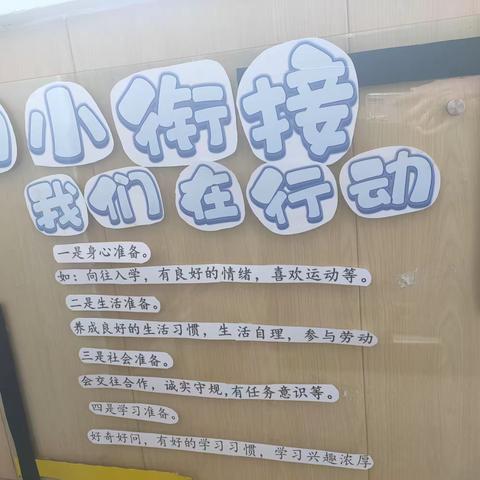 小衔接
我们在行动
一是身心准备。
如：向往入学，有良好的情绪，喜欢运动等。
二是生活准备。
养成良好的生活习惯，生活自理，参与劳动
三是社会准备。
会交往合作，诚实守规，有任务意识等。
四是学习准备。
好奇好问，有好的学习习惯，学习兴趣浓厚